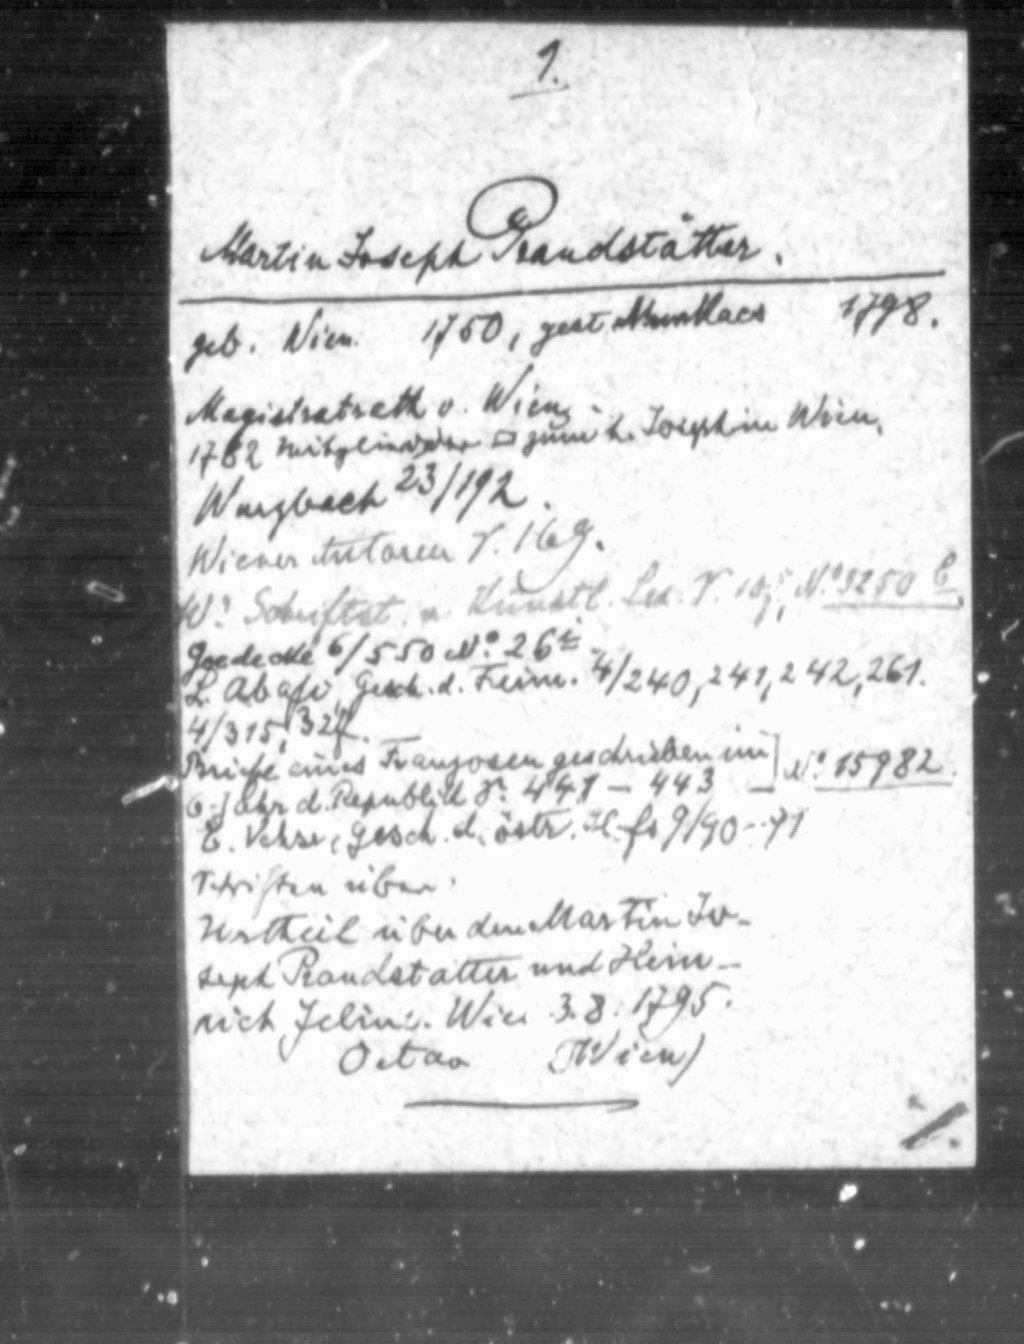 1.
Martin Joseph Prandstätter.
geb. Wien 1750, gest Munkacs 1798.
Magistratrath v. Wien,
1782 Mitglied der □ zum h. Joseph in Wien.
Wurzbach 23/192.
Wiener Autoren S. 169.
Schriftst. u Künstl. Lex. S. No 3250
Goedeke 6/550 No. 26
L. Abafi Gesch. d. Freim. 4/240, 241, 242, 261.
4/315,
Briefe eines Franzosen geschrieben im] No. 15982.
6. Jahr d. Republik S. 441 – 443 –
E. Vehse, Gesch. d. östr. Hfs 9/90–91
Schriften über:
Urtheil über den Martin Jo-
seph Prandstatter und Hein-
rich Jeline. Wien 3. 8. 1795.
Octav (Wien)